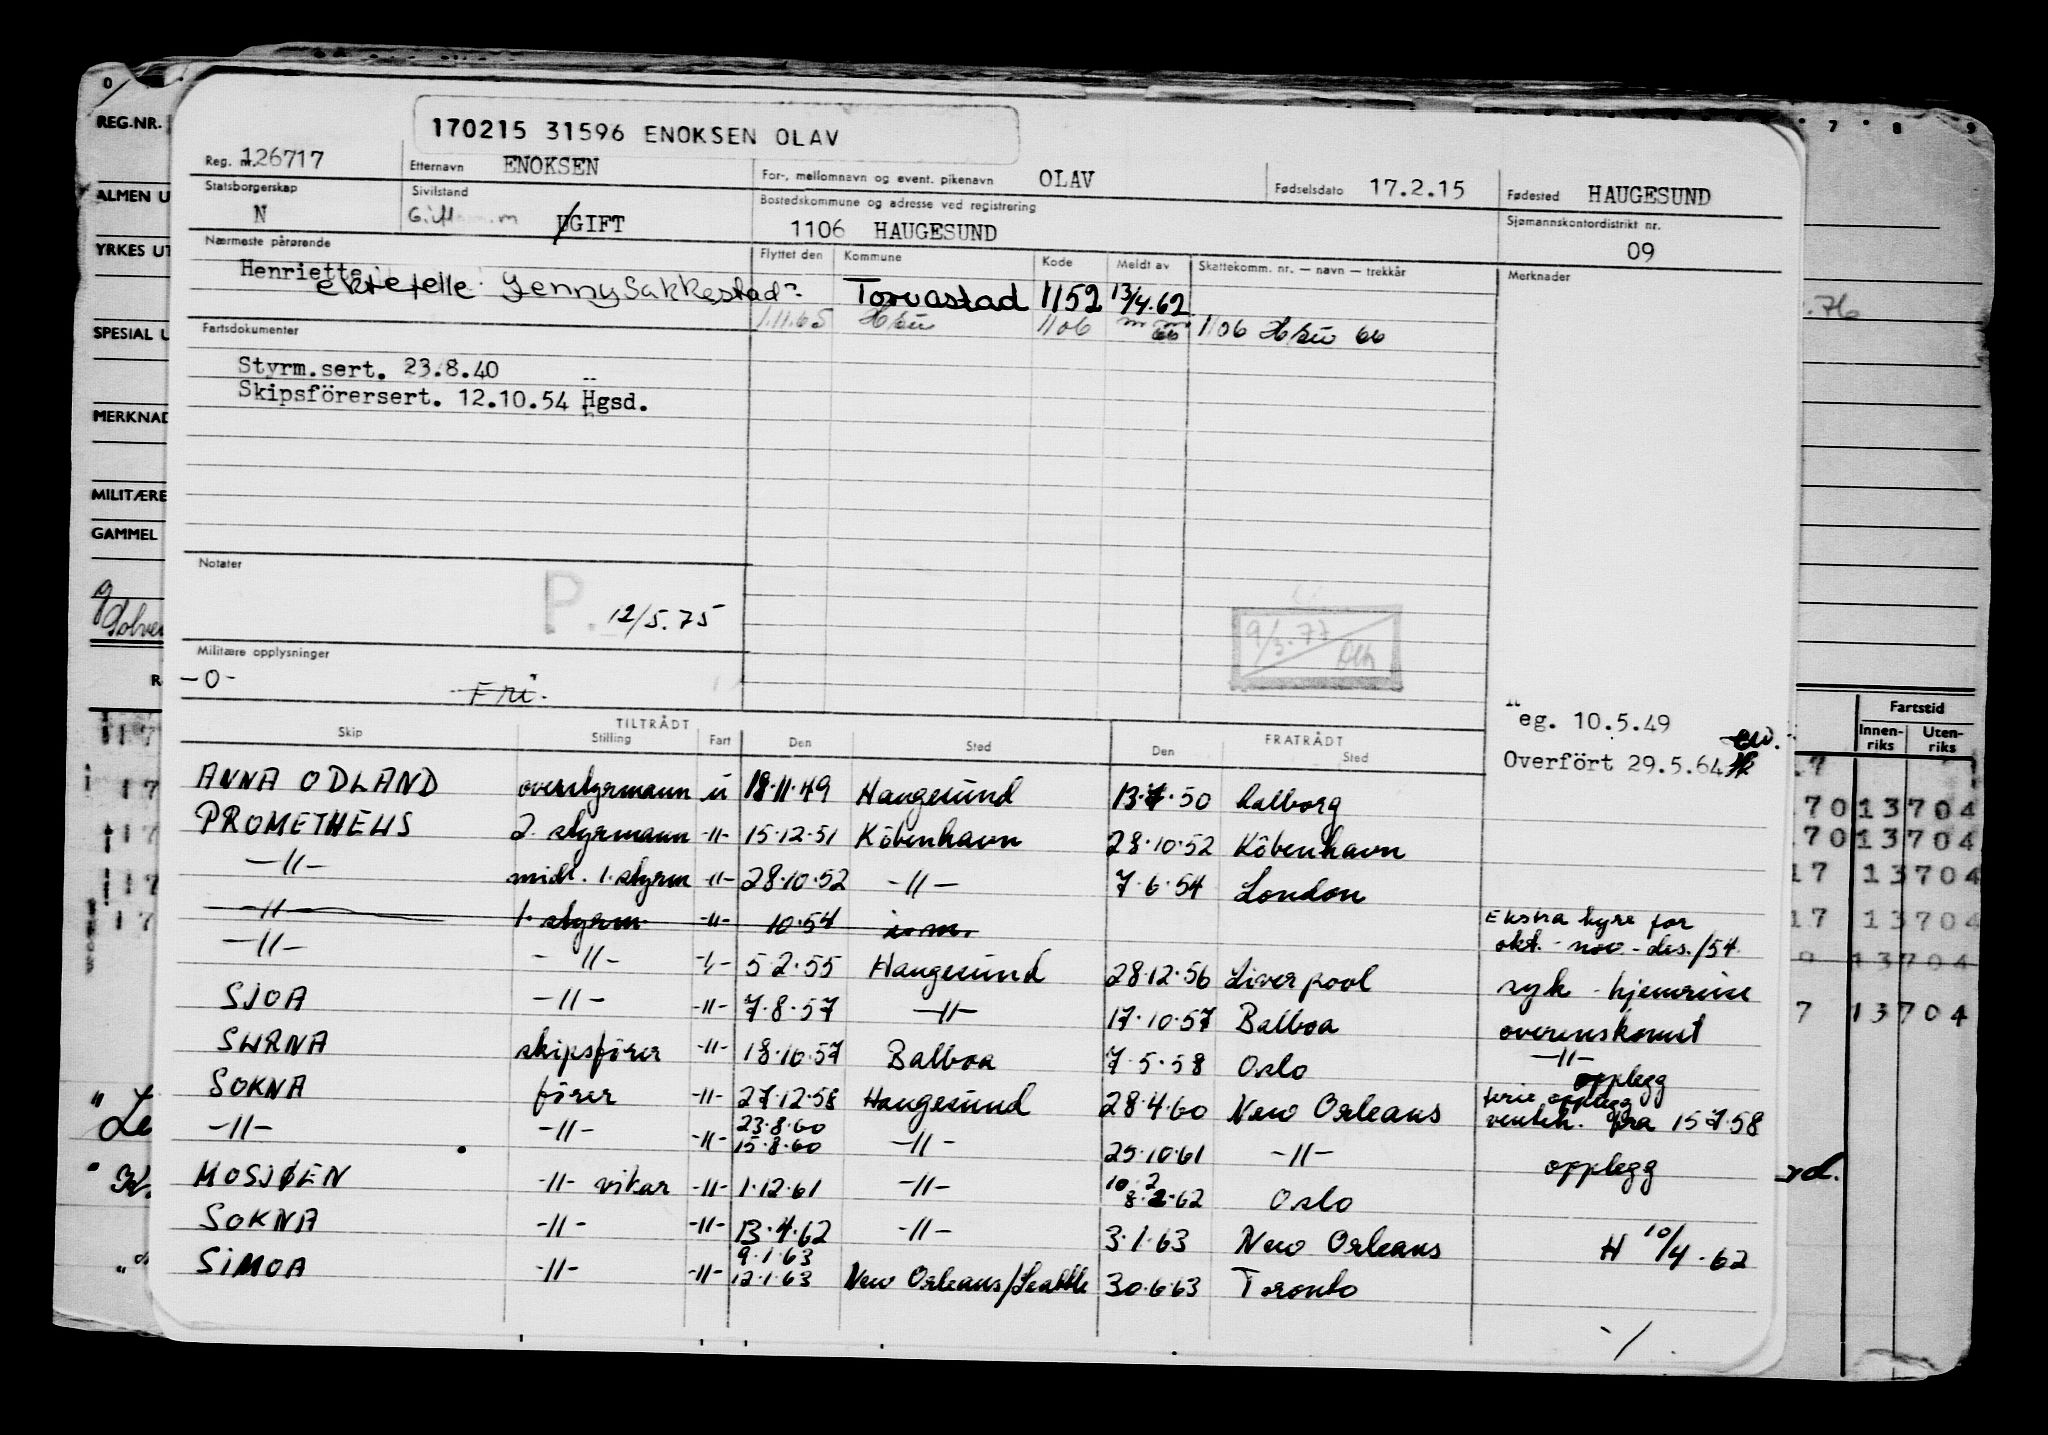 170215 31596 ENOKSEN OLAV
Reg. nr. 126717 Etternavn ENOKSEN For-, mellomnavn og event. pikenavn OLAV Fødselsdato 17.2.15 Fødested HAUGESUND
Statsborgerskap N Sivilstand UGIFT Bostedskommune og adresse ved registrering 1106 HAUGESUND Sjømannskontordistrikt nr. 09
Nærmeste pårørende Flyttet den Kommune Kode Meldt av Skattekomm. nr. — navn — trekkår Merknader
Henriette
ektefelle Jenny Sakkestad Torvastad 1152 13/4.62
1.11.65 Hsu 1106 66 1106 Hsu 66
Fartsdokumenter
Styrm.sert. 23.8.40
Skipsförersert. 12.10.54 Hgsd.
Notater
P. 12/5.75
9/3.77
Militære opplysninger
-0- Fri.
eg. 10.5.49
Overfört 29.5.64
Skip TILTRÅDT Stilling Fart Den Sted FRATRÅDT Den Sted
ANNA ODLAND overstyrmann u 18.11.49 Haugesund 13.7.50 Aalborg
PROMETHEUS 2. styrmann -"- 15.12.51 Köbenhavn 28.10.52 Köbenhavn
-"- midl. 1. styrm -"- 28.10.52 -"- 7.6.54 London
-"- 1. styrm. -"- 10.54 Ekstra hyre for okt.-nov.-des./54.
-"- -"- -"- 5.2.55 Haugesund 28.12.56 Liverpool syk - hjemreise
SJOA -"- -"- 7.8.57 -"- 17.10.57 Balboa overenskomst
SURNA skipsförer -"- 18.10.57 Balboa 7.5.58 Oslo -"- opplegg
SOKNA förer -"- 27.12.58 Haugesund 28.4.60 New Orleans ferie opplegg
venteh. fra 15.7.58
-"- -"- -"- 23.8.60 15.8.60 -"- 25.10.61 -"- opplegg
MOSJØEN -"- vikar -"- 1.12.61 -"- 10.2 8.2.62 Oslo
SOKNA -"- -"- 13.4.62 -"- 3.1.63 New Orleans H 10/4.62
SIMOA -"- -"- 9.1.63 12.1.63 New Orleans/Seattle 30.6.63 Toronto
REG.NR.
ALMEN U
YRKES UT
SPESIAL U
MERKNAD
MILITÆRE
GAMMEL
Fartstid
Innen-riks Uten-riks
7 8 9
13704
13704
13704
13704
13704
13704